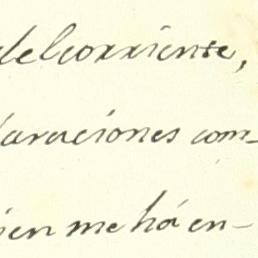 del corriente,
laraciones com-
ien me há en-